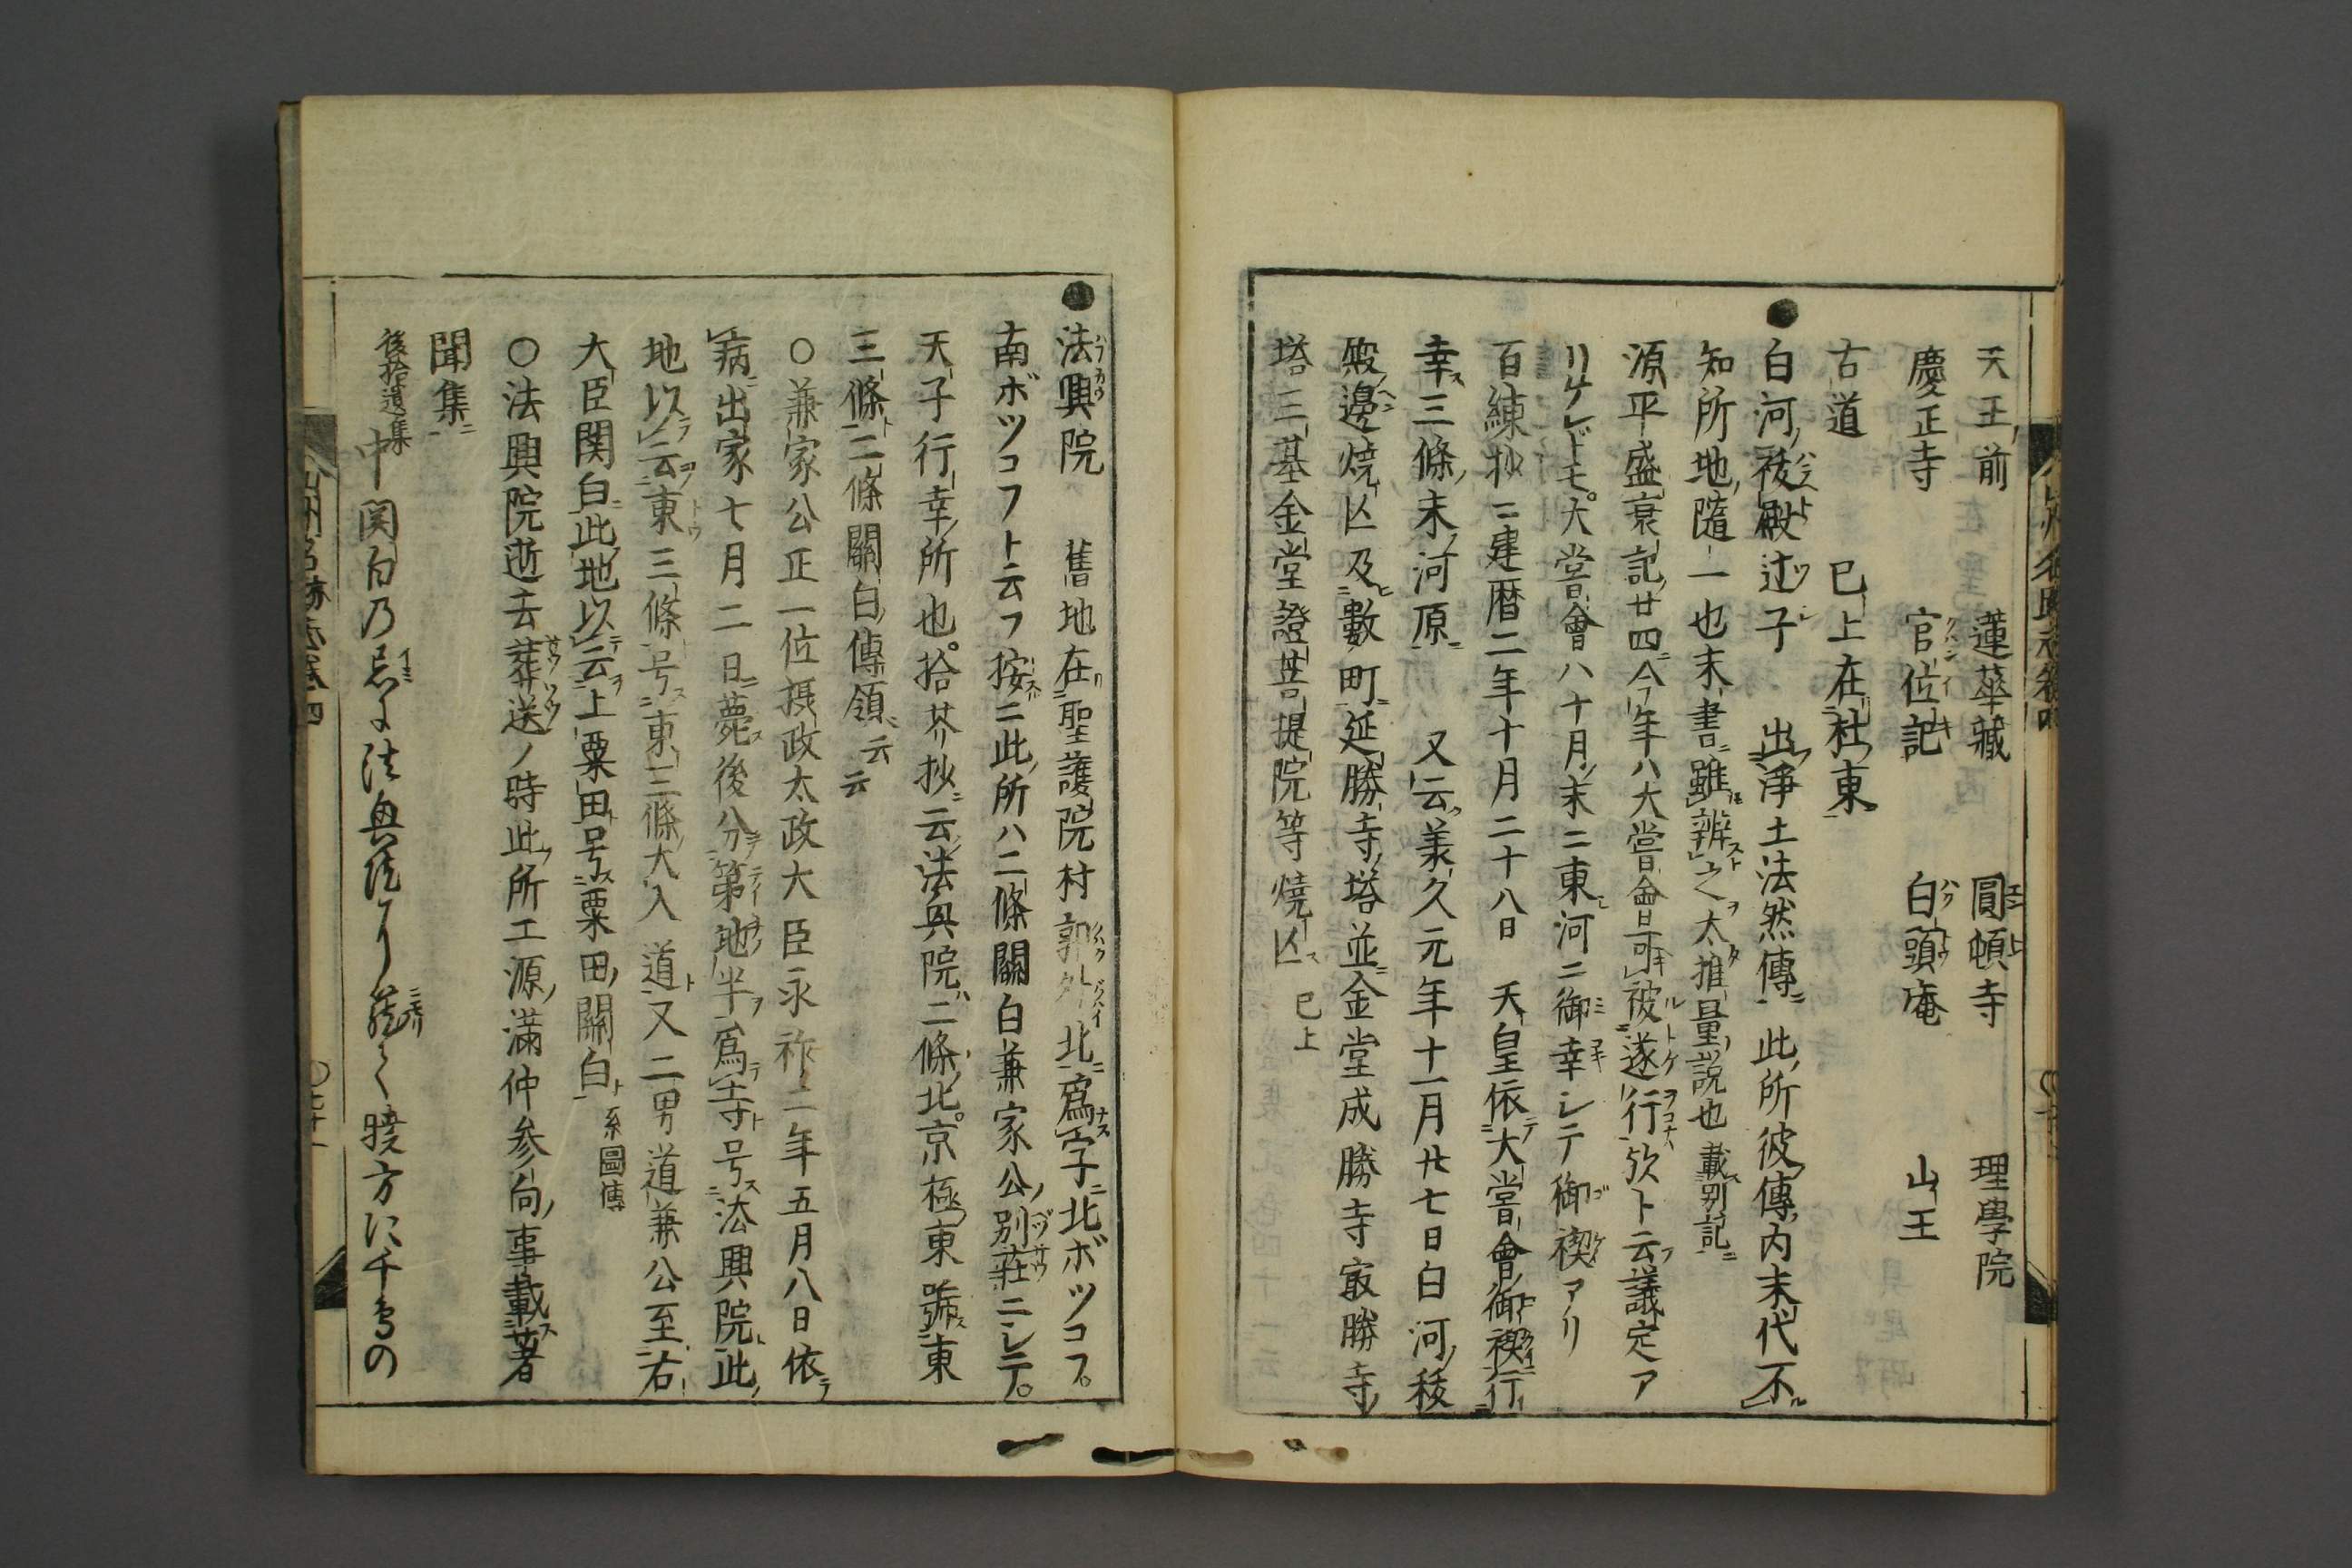 天王ノ前　蓮華藏　圓頓寺　理學院
慶正寺　官位記　白頭庵　山王
古道　已上在杜東
白河ノ禊殿辻子　出浄土法然傳此所彼傳ノ内末代不
知所地隨一也末書雖辨之太推量ノ説也載別記
源平盛衰記廿四今年ハ大嘗會可被遂行欤ト云フ議定ア
リケレドモ大嘗會ハ十月ノ末ニ東河ニ御幸シテ御禊アリ
百練抄ニ建暦二年十月二十八日　天皇依大嘗會御禊行
幸三條ノ末ノ河原　又云美久元年十一月廿七日白河ノ禊
殿邊燒亡及數町延勝寺塔並金堂成勝寺最勝寺ノ
塔三基金堂證菩提院等燒亡已上
法興院　舊地在聖護院村郭外北爲字北ボツコフ
南ボツコフト云フ按ニ此所ハ二條關白兼家公ノ別莊ニシテ
天子行幸ノ所也拾芥抄云法興院二條北京極東號東
三條二條關白傳領云云
○兼家公正一位摂政太政大臣永祚二年五月八日依
病出家七月二日薨後分第地半爲寺号法興院此
地以云東三條号東三條大入道又二男道兼公至右
大臣関白此地以云上粟田号粟田關白系圖傳
○法興院逝去葬送ノ時此所エ源滿仲参向ノ事載著
聞集
後拾遺集
中関白乃忌に法興院にこもりて曉方に千鳥の